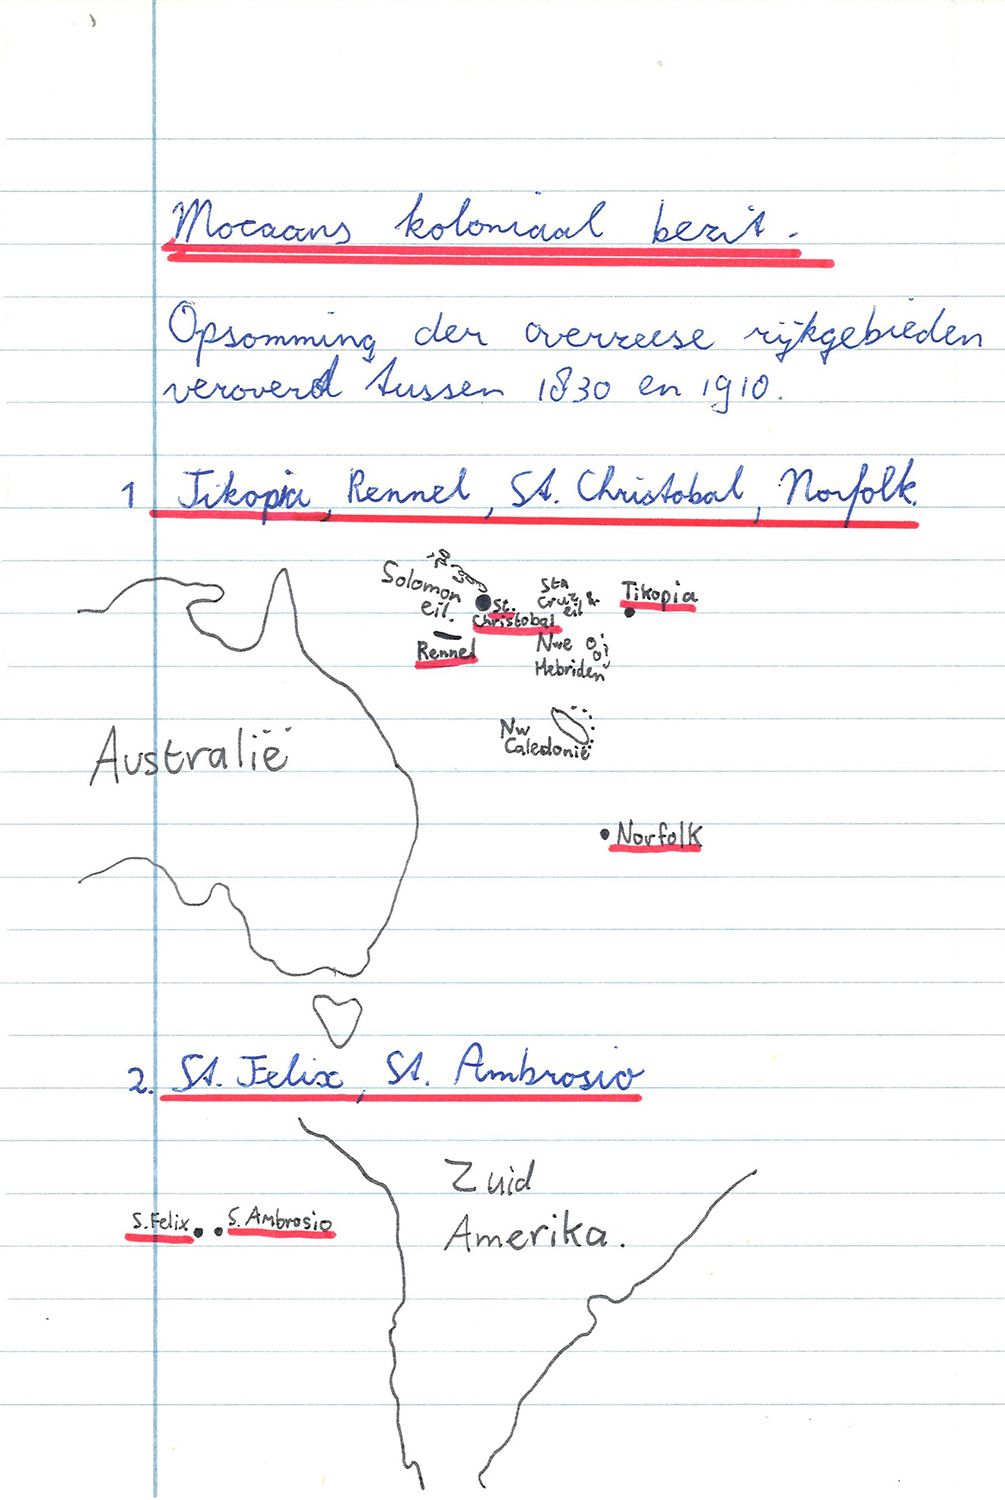 Mocaans koloniaal bezit.
Opsomming der overzeese rijkgebieden
veroverd tussen 1830 en 1910.
1 Tikopia, Rennel, St. Christobal, Norfolk.
Solomon
eil.
St.
Christobal
Sta
Cruz
eil
Tikopia
Rennel
Nwe
Hebriden
Australië
Nw
Caledonië
Norfolk
2. St. Felix, St. Ambrosio
Zuid
Amerika.
S. Felix
S. Ambrosio